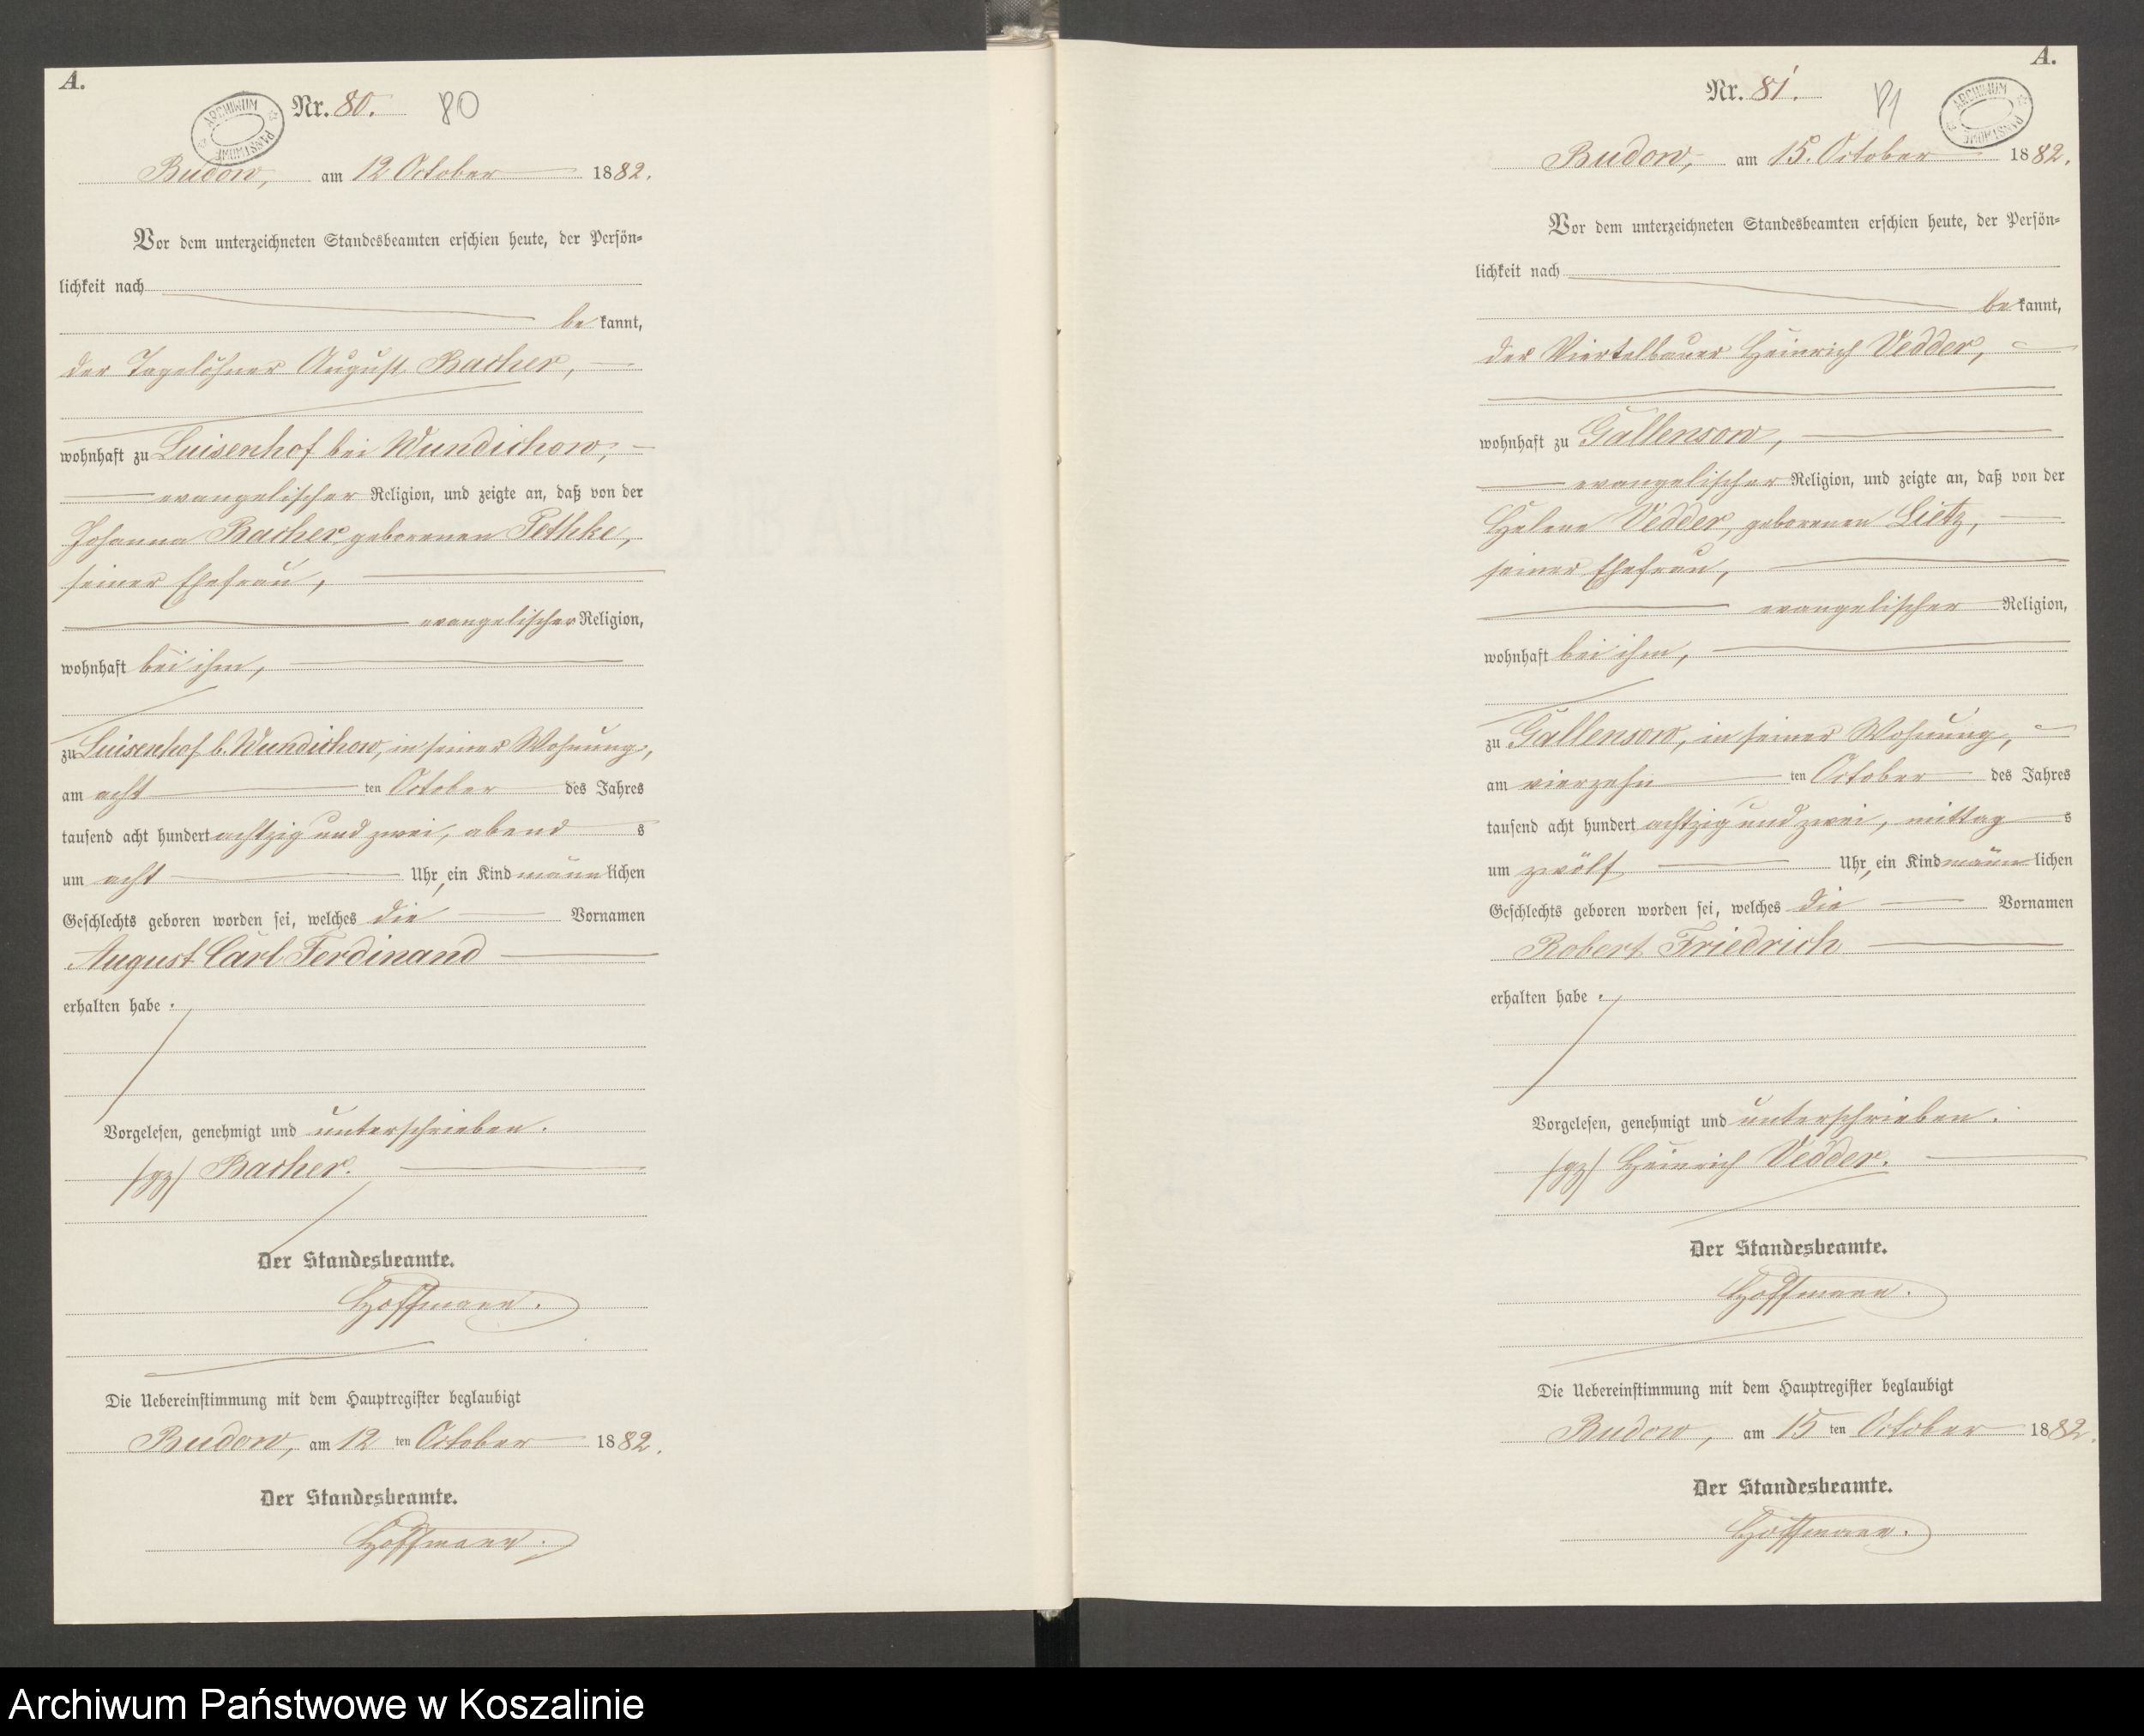 A.
Nr. 80. 80
ARCHIWUM PAŃSTWOWE
Budow, am 12 October 1882.
Vor dem unterzeichneten Standesbeamten erschien heute, der Persön-
lichkeit nach
be kannt,
der Tagelöhner August Bacher,
wohnhaft zu Luisenhof bei Wundichow,
evangelischer Religion, und zeigte an, daß von der
Johanna Bacher, geborenen Pethke,
seiner Ehefrau,
evangelischer Religion,
wohnhaft bei ihm,
zu Luisenhof b. Wundichow, in seiner Wohnung,
am acht ten October des Jahres
tausend acht hundert achtzig und zwei, abend s
um acht Uhr, ein Kind männlichen
Geschlechts geboren worden sei, welches die Vornamen
August Carl Ferdinand
erhalten habe.
Vorgelesen, genehmigt und unterschrieben.
/gz/ Bacher.
Der Standesbeamte.
Hoffmann.
Die Uebereinstimmung mit dem Hauptregister beglaubigt
Budow, am 12 ten October 1882.
Der Standesbeamte.
Hoffmann.
A.
Nr. 81. 81
ARCHIWUM PAŃSTWOWE
Budow, am 15. October 1882.
Vor dem unterzeichneten Standesbeamten erschien heute, der Persön-
lichkeit nach
be kannt,
der Viertelbauer Heinrich Vedder,
wohnhaft zu Gallensow,
evangelischer Religion, und zeigte an, daß von der
Helene Vedder, geborenen Lietz,
seiner Ehefrau,
evangelischer Religion,
wohnhaft bei ihm,
zu Gallensow, in seiner Wohnung,
am vierzehn ten October des Jahres
tausend acht hundert achtzig und zwei, mittag s
um zwölf Uhr, ein Kind männlichen
Geschlechts geboren worden sei, welches die Vornamen
Robert Friedrich
erhalten habe.
Vorgelesen, genehmigt und unterschrieben.
/gz/ Heinrich Vedder.
Der Standesbeamte.
Hoffmann.
Die Uebereinstimmung mit dem Hauptregister beglaubigt
Budow, am 15 ten October 1882.
Der Standesbeamte.
Hoffmann.
Archiwum Państwowe w Koszalinie